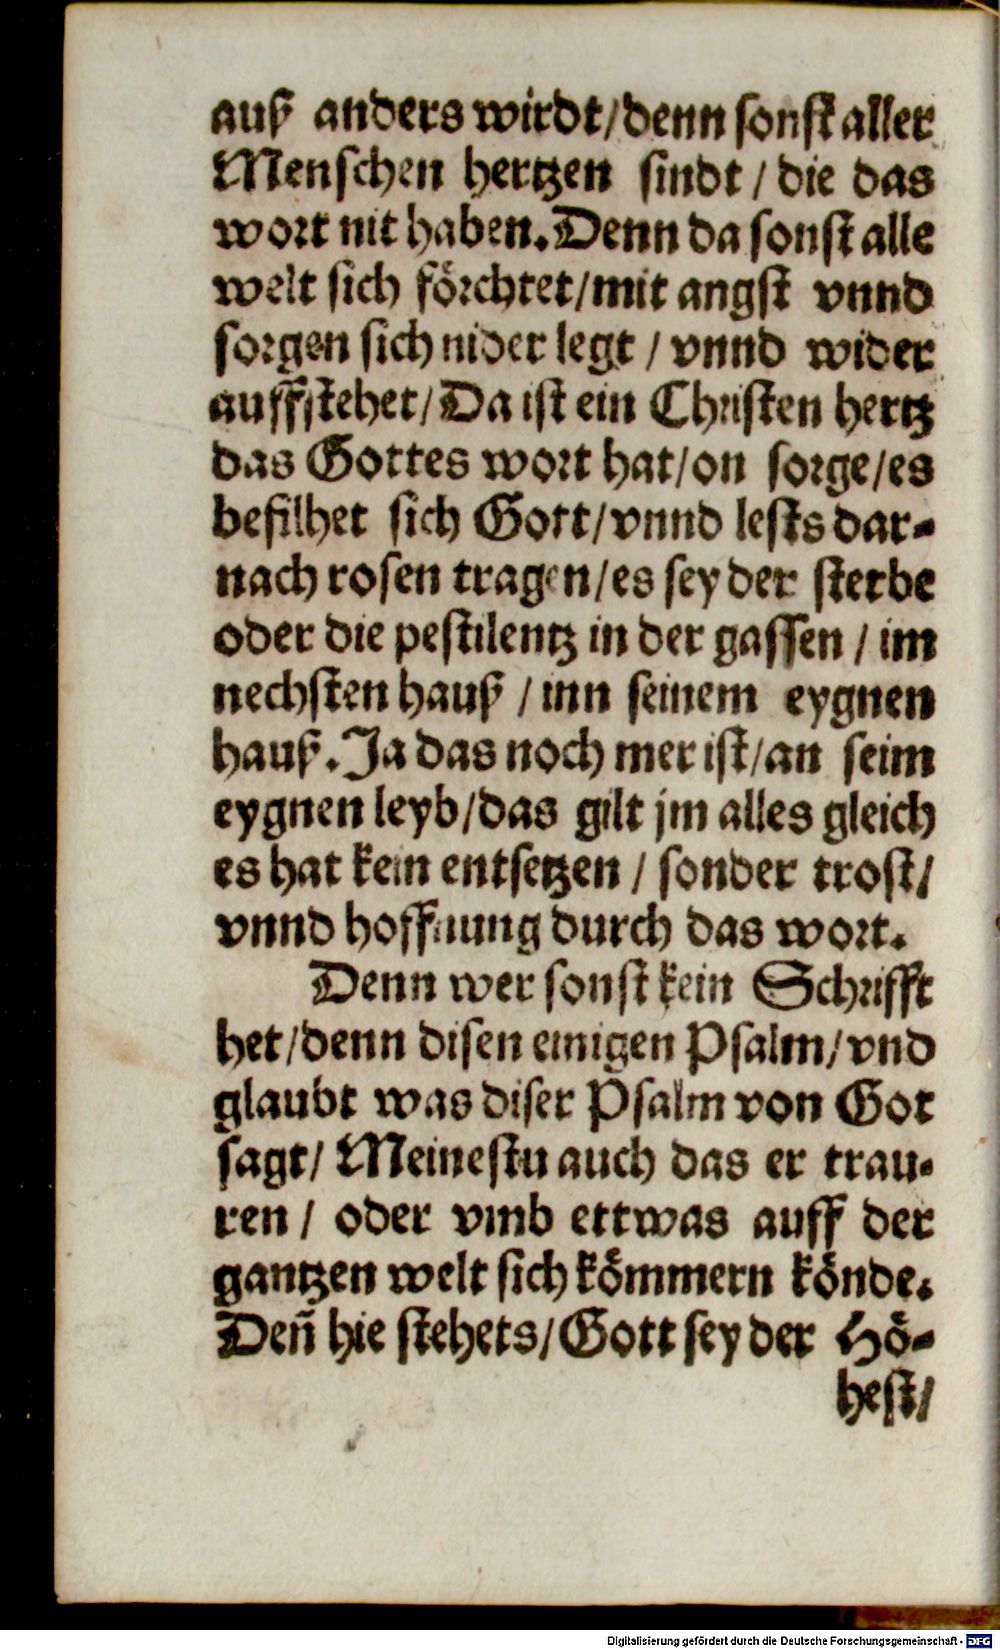 auß anders wirdt/denn sonst aller
Menschen hertzen sindt / die das
wort nit haben. Denn da sonst alle
welt sich förchtet/mit angst vnnd
sorgen sich nider legt / vnnd wider
auffstehet/Da ist ein Christen hertz
das Gottes wort hat/on sorge/es
befilhet sich Gott/vnnd lests dar-
nach rosen tragen/es sey der sterbe
oder die pestilentz in der gassen / im
nechsten hauß / inn seinem eygnen
hauß. Ja das noch mer ist/an seim
eygnen leyb/das gilt jm alles gleich
es hat kein entsetzen / sonder trost/
vnnd hoffnung durch das wort.
Denn wer sonst kein Schrifft
het/denn disen einigen Psalm/vnd
glaubt was diser Psalm von Got
sagt/ Meinestu auch das er trau-
ren / oder vmb ettwas auff der
gantzen welt sich kömmern könde.
Deñ hie stehets/Gott sey der Hö-
hest/
Digitalisierung gefördert durch die Deutsche Forschungsgemeinschaft - DFG